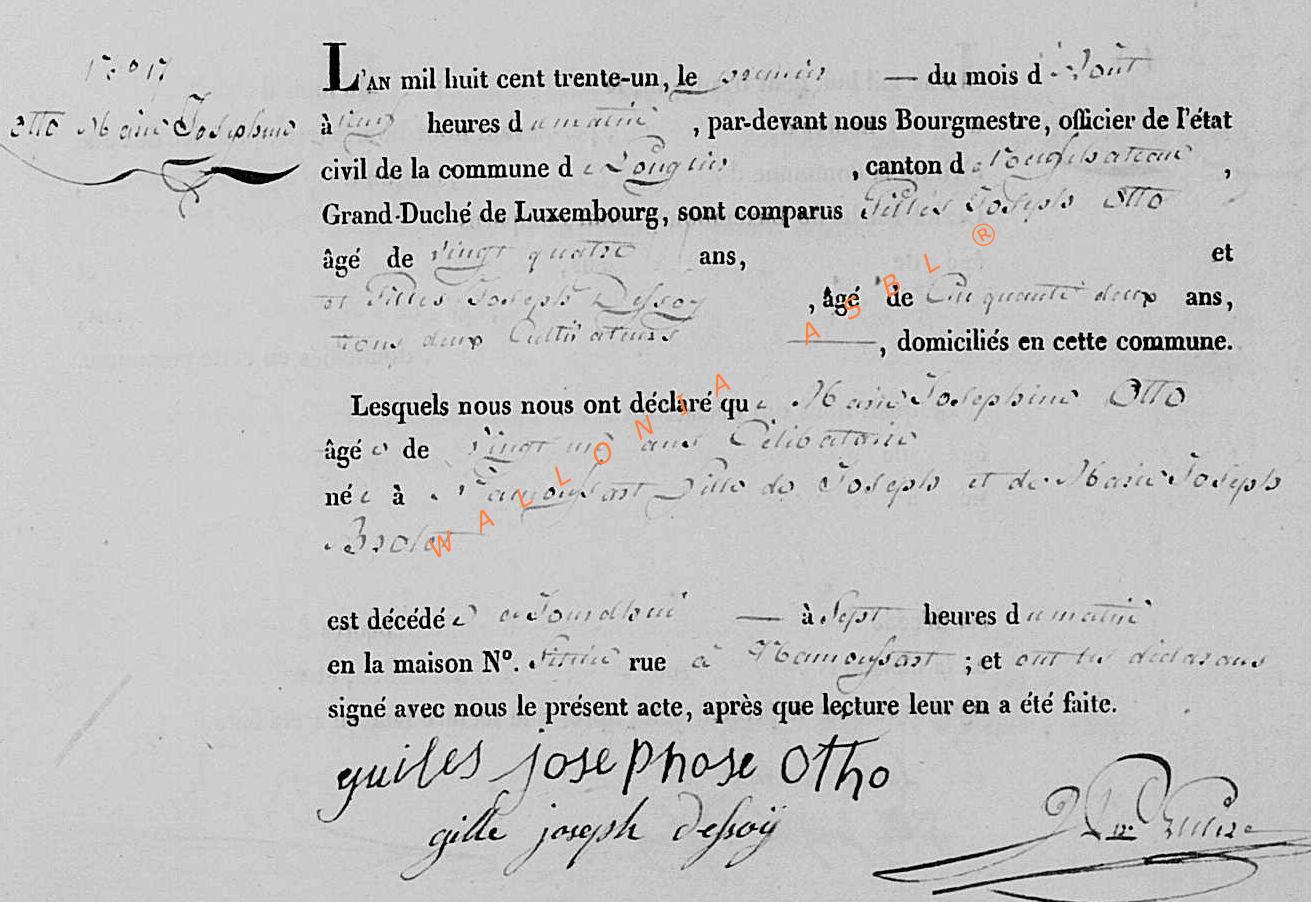 N° 17
Otto Marie Josephine
L'AN mil huit cent trente-un, le premier — du mois d'Août
à heures du matin, par-devant nous Bourgmestre, officier de l'état
civil de la commune de Longlier, canton de Neufchateau,
Grand-Duché de Luxembourg, sont comparus Gilles Joseph Otto
âgé de vingt quatre ans, et
et Gilles Joseph Dessoy, âgé de Cinquante deux ans,
tous deux Cultivateurs —, domiciliés en cette commune.
Lesquels nous nous ont déclaré que Marie Josephine Otto
âgée de vingt un ans Célibataire
née à Hamoussart fille de Joseph et de Marie Joseph
est décédée aujourdhui — à Sept heures du matin
en la maison N°. rue à Namoussart ; et ont les déclarans
signé avec nous le présent acte, après que lecture leur en a été faite.
guiles josephose Otho
gille joseph dessoÿ
WALLONIA ASBL ®